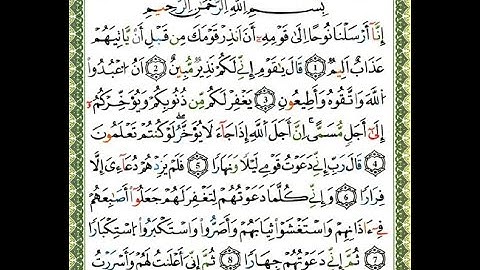 بِسْمِ اللَّهِ الرَّحْمَٰنِ الرَّحِيمِ
إِنَّآ أَرْسَلْنَا نُوحًا إِلَىٰ قَوْمِهِۦٓ أَنْ أَنذِرْ قَوْمَكَ مِن قَبْلِ أَن يَأْتِيَهُمْ
عَذَابٌ أَلِيمٌ ١ قَالَ يَٰقَوْمِ إِنِّي لَكُمْ نَذِيرٌ مُّبِينٌ ٢ أَنِ اعْبُدُوا
اللَّهَ وَاتَّقُوهُ وَأَطِيعُونِ ٣ يَغْفِرْ لَكُم مِّن ذُنُوبِكُمْ وَيُؤَخِّرْكُمْ
إِلَىٰٓ أَجَلٍ مُّسَمًّى إِنَّ أَجَلَ اللَّهِ إِذَا جَآءَ لَا يُؤَخَّرُ لَوْ كُنتُمْ تَعْلَمُونَ
٤ قَالَ رَبِّ إِنِّي دَعَوْتُ قَوْمِي لَيْلًا وَنَهَارًا ٥ فَلَمْ يَزِدْهُمْ دُعَآءِىٓ إِلَّا
فِرَارًا ٦ وَإِنِّي كُلَّمَا دَعَوْتُهُمْ لِتَغْفِرَ لَهُمْ جَعَلُوٓا أَصَٰبِعَهُمْ
فِىٓ ءَاذَانِهِمْ وَاسْتَغْشَوْا ثِيَابَهُمْ وَأَصَرُّوا وَاسْتَكْبَرُوا اسْتِكْبَارًا
٧ ثُمَّ إِنِّي دَعَوْتُهُمْ جِهَارًا ٨ ثُمَّ إِنِّىٓ أَعْلَنتُ لَهُمْ وَأَسْرَرْتُ